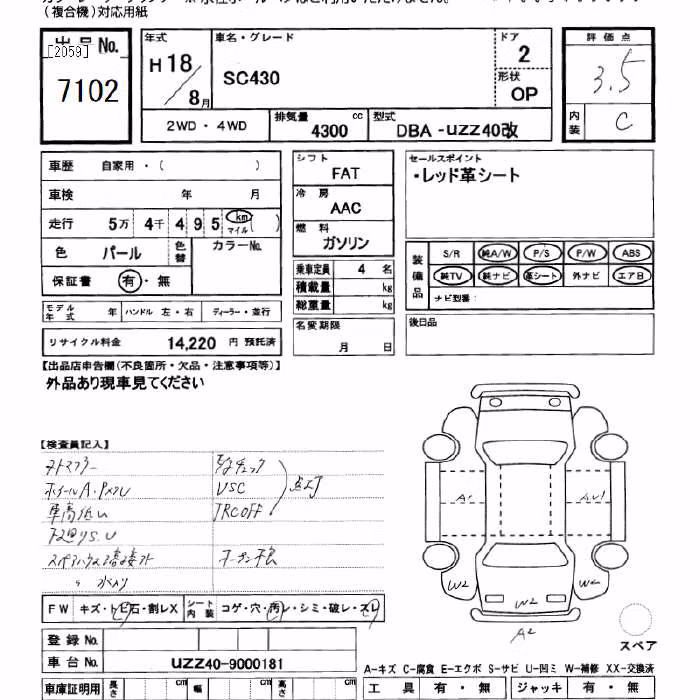 (複合機)対応用紙
出品No.
[2059]
7102
年式
H18/8月
車名・グレード
SC430
ドア
2
形状
OP
評価点
3.5
内装
C
2WD・4WD
排気量
4300 cc
型式
DBA-UZZ40改
車歴 自家用・( )
車検 年 月
走行 5万 4千 4 9 5 km マイル( )
色 パール 色替 カラーNo.
保証書 有・無
モデル年式 年 ハンドル 左・右 ディーラー・並行
リサイクル料金 14,220 円 預託済
シフト
FAT
冷房
AAC
燃料
ガソリン
乗車定員 4 名
積載量 kg
総重量 kg
名変期限
月 日
セールスポイント
・レッド革シート
装備品
S/R 純A/W P/S P/W ABS
純TV 純ナビ 革シート 外ナビ エアB
ナビ型番:
後日品
【出品店申告欄(不良箇所・欠品・注意事項等)】
外品あり現車見てください
【検査員記入】
ホイールA・
車高低い
VSC
TRC OFF
点灯
下廻りS.U
オープン不良
A1
AU1
W2
W2
W2
A2
FW キズ・トビ石・割レX
シート内装 コゲ・穴・汚レ・シミ・破レ・スレ
登録No.
車台No. UZZ40-9000181
車庫証明用 長さ cm 幅 cm 高さ cm
スペア
A-キズ C-腐食 E-エクボ S-サビ U-凹ミ W-補修 XX-交換済
工具 有・無 ジャッキ 有・無